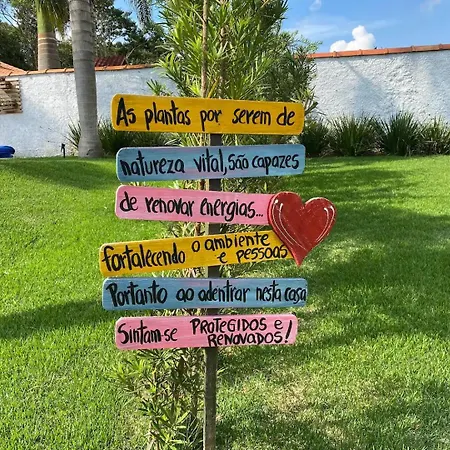 As plantas por serem de
natureza vital, são capazes
de renovar energias...
fortalecendo o ambiente
e pessoas
Portanto ao adentrar nesta casa
Sintam-se PROTEGIDOS E
RENOVADOS!